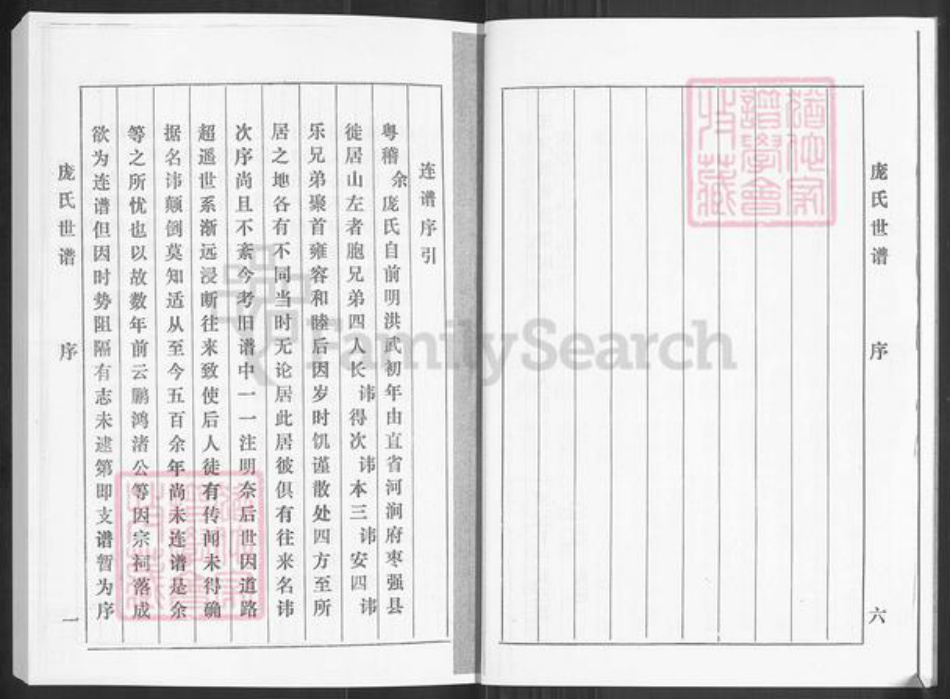 庞氏世谱
序
六
猶他家
譜學會
收藏
连谱序引
粤稽余庞氏自前明洪武初年由直省河涧府枣强县
徙居山左者胞兄弟四人长讳得次讳本三讳安四讳
乐兄弟聚首雍容和睦后因岁时饥谨散处四方至所
居之地各有不同当时无论居此居彼俱有往来名讳
次序尚且不紊今考旧谱中一一注明奈后世因道路
超遥世系渐远浸断往来致使后人徒有传闻未得确
据名讳颠倒莫知适从至今五百余年尚未连谱是余
等之所忧也以故数年前云鹏鸿渚公等因宗祠落成
欲为连谱但因时势阻隔有志未逮第即支谱暂为序
庞氏世谱
序
一
猶他家
譜學會
收藏
FamilySearch